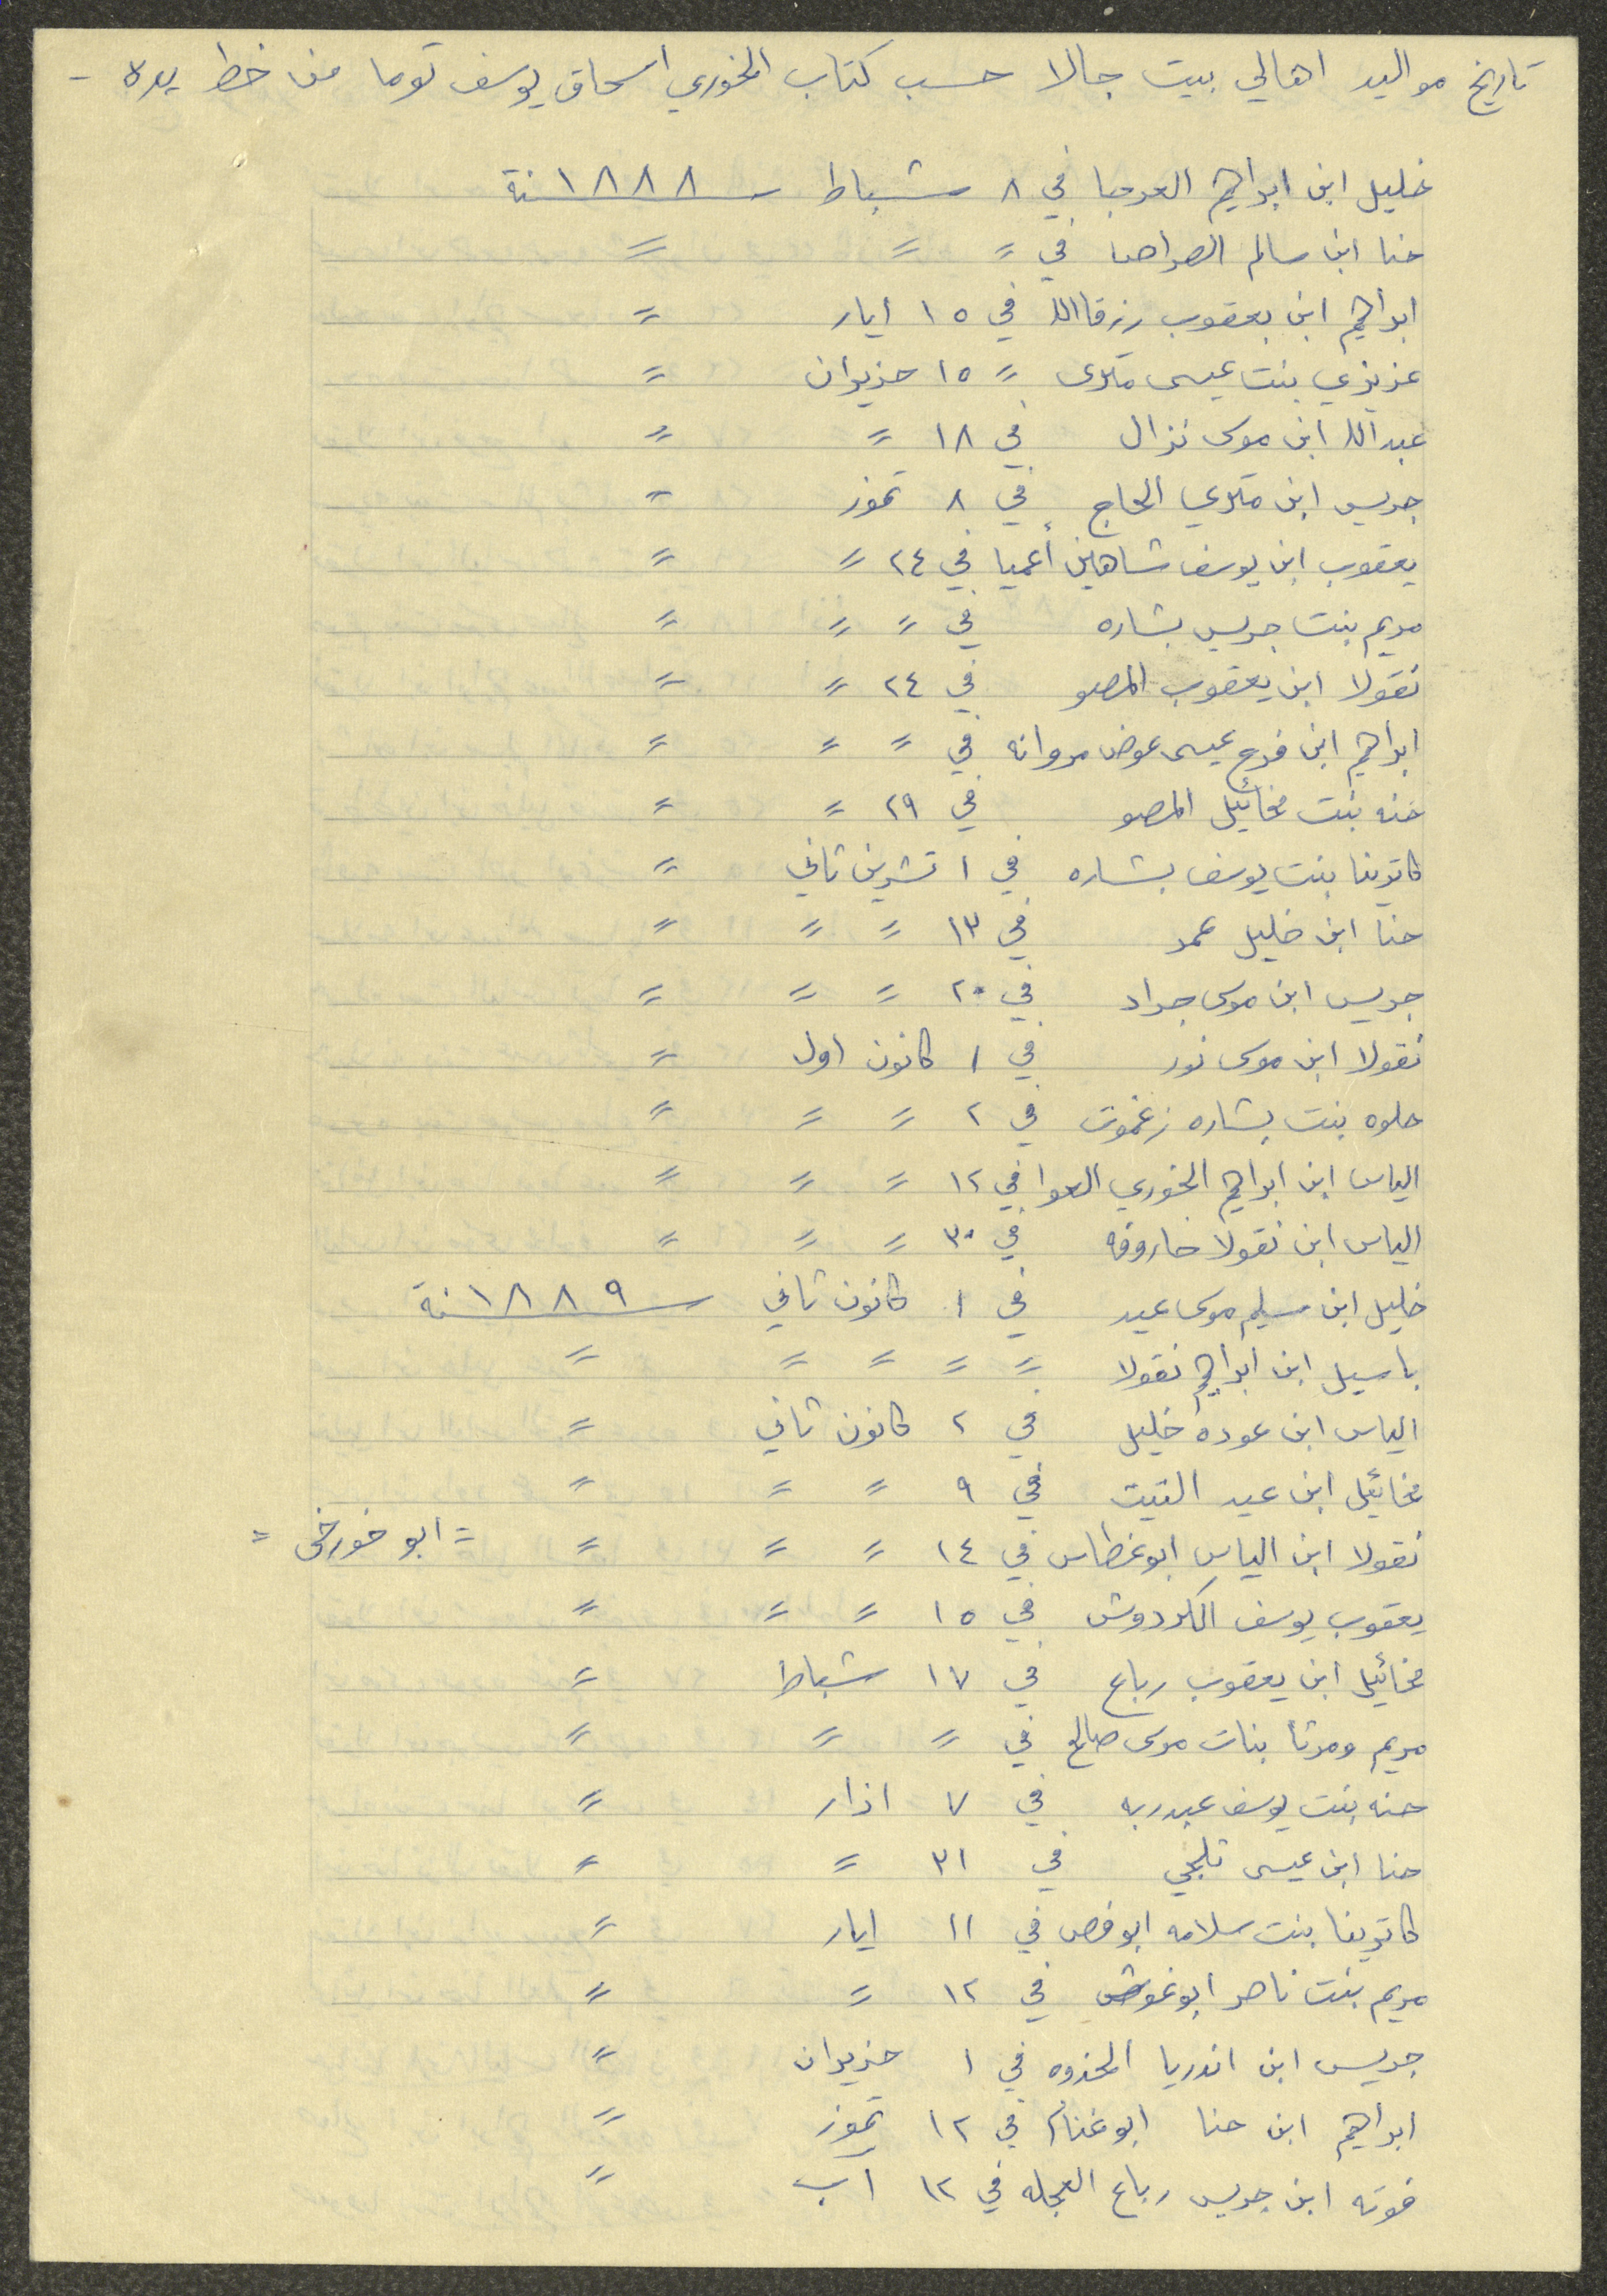 تاريخ مواليد اهالي بيت جالا حسب كتاب الخوري اسحاق يوسف توما من خط يده -
خليل ابن ابراهيم العرجا في ٨ شباط سنة ١٨٨٨
حنا ابن سالم الصراصا في = = =
ابراهيم ابن يعقوب رزقالله في ١٥ ايار =
عزيزي بنت عيسى متري = ١٥ حزيران =
عبدالله ابن موسى نزال في ١٨ = =
جريس ابن متري الحاج في ٨ تموز =
يعقوب ابن يوسف شاهين أعميا في ٢٤ = =
مريم بنت جريس بشاره في = = =
نقولا ابن يعقوب المصو في ٢٤ = =
ابراهيم ابن فرح عيسى عوض مروانه في = = =
حنه بنت مخائيل المصو في ٢٩ = =
كاترينا بنت يوسف بشاره في ١ تشرين ثاني =
حنا ابن خليل عمد في ١٣ = = =
جريس ابن موسى جراد في ٢٠ = = =
نقولا ابن موسى نور في ١ كانون اول =
حلوه بنت بشاره زغموت في ٢ = = =
الياس ابن ابراهيم الخوري العوا في ١٢ = = =
الياس ابن نقولا خاروفه في ٣٠ = = =
خليل ابن سليم موسى عيد في ١ كانون ثاني سنة ١٨٨٩
باسيل ابن ابراهيم نقولا = = = = =
الياس ابن عوده خليل في ٢ كانون ثاني =
مخائيل ابن عيد التيت في ٩ = = =
نقولا ابن الياس ابوغطاس في ١٤ = = = = ابو خورخي =
يعقوب يوسف الكردوش في ١٥ = = =
مخائيل ابن يعقوب رباع في ١٧ شباط =
مريم ومرتا بنات موسى صالح في = = =
حنه بنت يوسف عبدربه في ٧ اذار =
حنا ابن عيسى تلجي في ٣١ = =
كاترينا بنت سلامه ابوفص في ١١ ايار =
مريم بنت ناصر ابوغوش في ١٢ = =
جريس ابن اندريا الخذوه في ١ حزيران =
ابراهيم ابن حنا ابوغنام في ١٢ تموز =
ابن جريس رباع العجله في ١٢ آب =